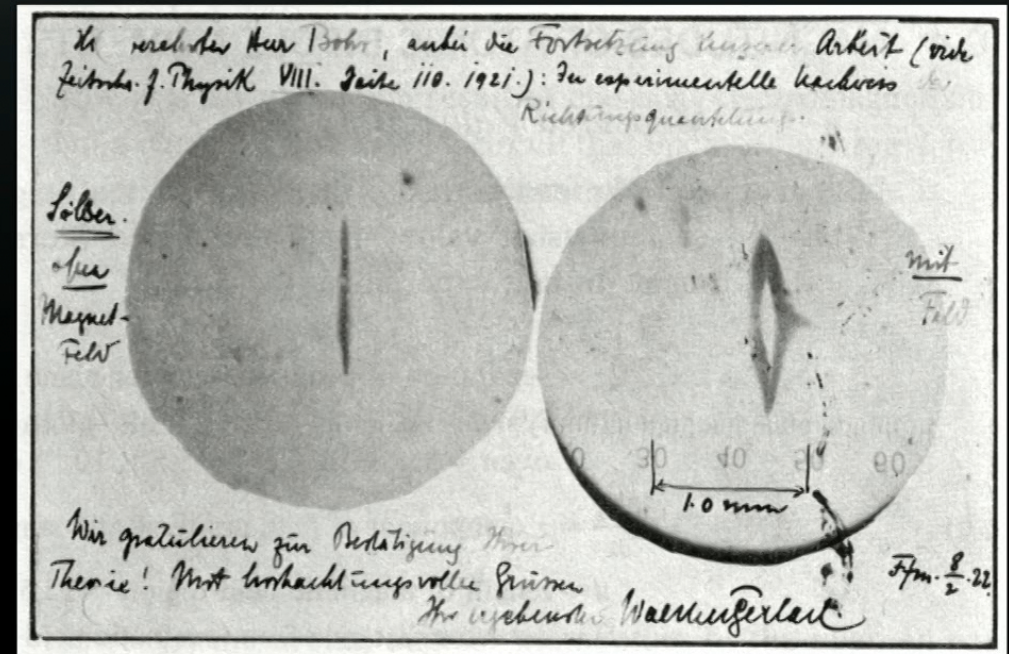 verehrter Herr Bohr, anbei die Fortsetzung unserer Arbeit (vide
Zeitschr. f. Physik VIII. Seite 110. 1921.): Der experimentelle Nachweis der
Richtungsquantelung.
Silber
ohne
Magnet-
Feld
mit
Feld
30 40 50 60
1.0 mm
Wir gratulieren zur Bestätigung Ihrer
Theorie! Mit hochachtungsvollen Grüssen
Ihr ergebenster Walther Gerlach
Ffm. 8/2.22.